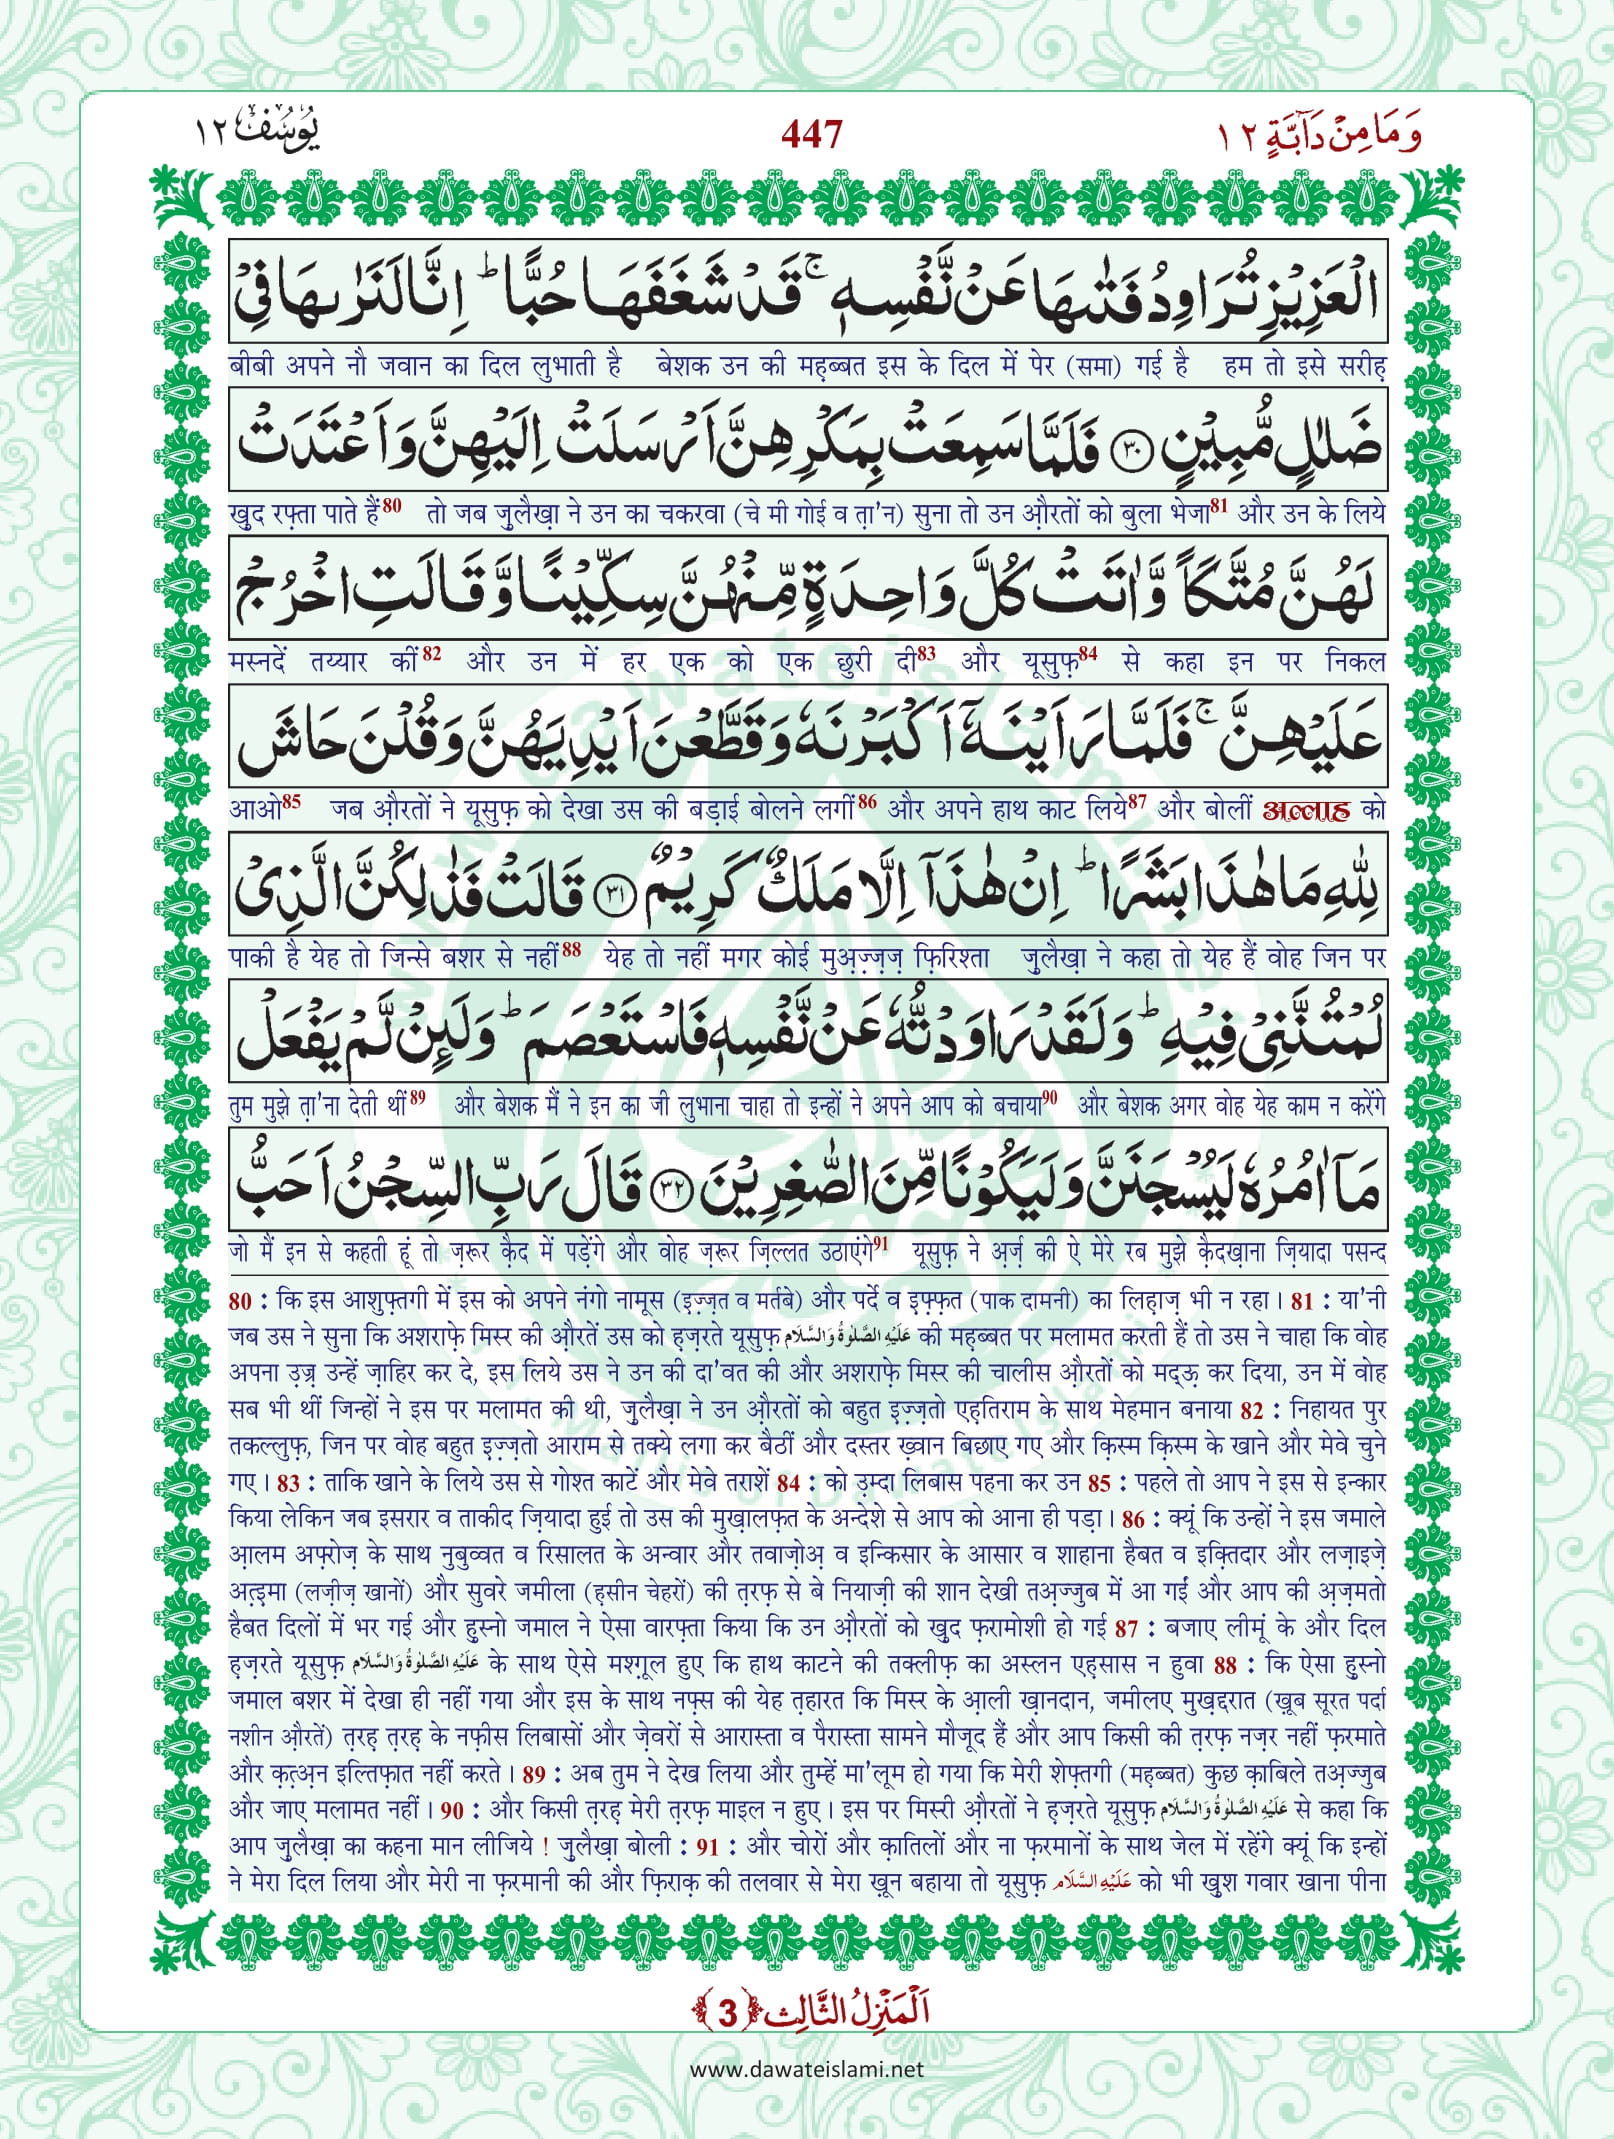 وَمَا مِنْ دَآبَّةٍ ١٢
447
يُوْسُف ١٢
الْعَزِيْزِ تُرَاوِدُ فَتٰىهَا عَنْ نَّفْسِهٖ ۚ قَدْ شَغَفَهَا حُبًّا ؕ اِنَّا لَنَرٰىهَا فِيْ
बीबी अपने नौ जवान का दिल लुभाती है बेशक उन की महब्बत इस के दिल में पेर (समा) गई है हम तो इसे सरीह़
ضَلٰلٍ مُّبِيْنٍ ﴿۳۰﴾ فَلَمَّا سَمِعَتْ بِمَكْرِهِنَّ اَرْسَلَتْ اِلَيْهِنَّ وَاَعْتَدَتْ
खुद रफ़्ता पाते हैं80 तो जब ज़ुलैख़ा ने उन का चकरवा (चे मी गोई व त़ा'न) सुना तो उन औ़रतों को बुला भेजा81 और उन के लिये
لَهُنَّ مُتَّكَاً وَّاٰتَتْ كُلَّ وَاحِدَةٍ مِّنْهُنَّ سِكِّيْنًا وَّقَالَتِ اخْرُجْ
मस्नदें तय्यार कीं82 और उन में हर एक को एक छुरी दी83 और यूसुफ़84 से कहा इन पर निकल
عَلَيْهِنَّ ۚ فَلَمَّا رَاَيْنَهٗۤ اَكْبَرْنَهٗ وَقَطَّعْنَ اَيْدِيَهُنَّ وَقُلْنَ حَاشَ
आओ85 जब औ़रतों ने यूसुफ़ को देखा उस की बड़ाई बोलने लगीं86 और अपने हाथ काट लिये87 और बोलीं अल्लाह को
لِلّٰهِ مَا هٰذَا بَشَرًا ؕ اِنْ هٰذَاۤ اِلَّا مَلَكٌ كَرِيْمٌ ﴿۳۱﴾ قَالَتْ فَذٰلِكُنَّ الَّذِيْ
पाकी है येह तो जिन्से बशर से नहीं88 येह तो नहीं मगर कोई मुअ़ज़्ज़ज़ फ़िरिश्ता ज़ुलैख़ा ने कहा तो येह हैं वोह जिन पर
لُمْتُنَّنِيْ فِيْهِ ؕ وَلَقَدْ رَاوَدْتُّهٗ عَنْ نَّفْسِهٖ فَاسْتَعْصَمَ ؕ وَلَئِنْ لَّمْ يَفْعَلْ
तुम मुझे त़ा'ना देती थीं89 और बेशक मैं ने इन का जी लुभाना चाहा तो इन्हों ने अपने आप को बचाया90 और बेशक अगर वोह येह काम न करेंगे
مَاۤ اٰمُرُهٗ لَيُسْجَنَنَّ وَلَيَكُوْنًا مِّنَ الصّٰغِرِيْنَ ﴿۳۲﴾ قَالَ رَبِّ السِّجْنُ اَحَبُّ
जो मैं इन से कहती हूं तो ज़रूर क़ैद में पड़ेंगे और वोह ज़रूर ज़िल्लत उठाएंगे91 यूसुफ़ ने अ़र्ज़ की ऐ मेरे रब मुझे क़ैदख़ाना ज़ियादा पसन्द
80 : कि इस आशुफ़्तगी में इस को अपने नंगो नामूस (इ़ज़्ज़त व मर्तबे) और पर्दे व इ़फ़्फ़त (पाक दामनी) का लिह़ाज़ भी न रहा। 81 : या'नी
जब उस ने सुना कि अशराफ़े मिस्र की औ़रतें उस को ह़ज़रते यूसुफ़ عَلَيْهِ الصَّلٰوةُ وَالسَّلَام की महब्बत पर मलामत करती हैं तो उस ने चाहा कि वोह
अपना उ़ज़्र उन्हें ज़ाहिर कर दे, इस लिये उस ने उन की दा'वत की और अशराफ़े मिस्र की चालीस औ़रतों को मद्ऊ़ कर दिया, उन में वोह
सब भी थीं जिन्हों ने इस पर मलामत की थी, ज़ुलैख़ा ने उन औ़रतों को बहुत इ़ज़्ज़तो एह़तिराम के साथ मेहमान बनाया 82 : निहायत पुर
तकल्लुफ़, जिन पर वोह बहुत इ़ज़्ज़तो आराम से तक्ये लगा कर बैठीं और दस्तर ख़्वान बिछाए गए और क़िस्म क़िस्म के खाने और मेवे चुने
गए। 83 : ताकि खाने के लिये उस से गोश्त काटें और मेवे तराशें 84 : को उ़म्दा लिबास पहना कर उन 85 : पहले तो आप ने इस से इन्कार
किया लेकिन जब इसरार व ताकीद ज़ियादा हुई तो उस की मुख़ालफ़त के अन्देशे से आप को आना ही पड़ा। 86 : क्यूं कि उन्हों ने इस जमाले
आ़लम अफ़्रोज़ के साथ नुबुव्वत व रिसालत के अन्वार और तवाज़ोअ़ व इन्किसार के आसार व शाहाना हैबत व इक़्तिदार और लज़ाइज़े
अत़्इ़मा (लज़ीज़ खानों) और सुवरे जमीला (ह़सीन चेहरों) की त़रफ़ से बे नियाज़ी की शान देखी तअ़ज्जुब में आ गईं और आप की अ़ज़मतो
हैबत दिलों में भर गई और हुस्नो जमाल ने ऐसा वारफ़्ता किया कि उन औ़रतों को खुद फ़रामोशी हो गई 87 : बजाए लीमूं के और दिल
ह़ज़रते यूसुफ़ عَلَيْهِ الصَّلٰوةُ وَالسَّلَام के साथ ऐसे मश्ग़ूल हुए कि हाथ काटने की तक्लीफ़ का अस्लन एह़सास न हुवा 88 : कि ऐसा हुस्नो
जमाल बशर में देखा ही नहीं गया और इस के साथ नफ़्स की येह त़हारत कि मिस्र के आ़ली ख़ानदान, जमीलए मुख़द्दरात (ख़ूब सूरत पर्दा
नशीन औ़रतें) त़रह़ त़रह़ के नफ़ीस लिबासों और ज़ेवरों से आरास्ता व पैरास्ता सामने मौजूद हैं और आप किसी की त़रफ़ नज़र नहीं फ़रमाते
और क़त़्अ़न इल्तिफ़ात नहीं करते। 89 : अब तुम ने देख लिया और तुम्हें मा'लूम हो गया कि मेरी शेफ़्तगी (महब्बत) कुछ क़ाबिले तअ़ज्जुब
और जाए मलामत नहीं। 90 : और किसी त़रह़ मेरी त़रफ़ माइल न हुए। इस पर मिस्री औ़रतों ने ह़ज़रते यूसुफ़ عَلَيْهِ الصَّلٰوةُ وَالسَّلَام से कहा कि
आप ज़ुलैख़ा का कहना मान लीजिये ! ज़ुलैख़ा बोली : 91 : और चोरों और क़ातिलों और ना फ़रमानों के साथ जेल में रहेंगे क्यूं कि इन्हों
ने मेरा दिल लिया और मेरी ना फ़रमानी की और फ़िराक़ की तलवार से मेरा ख़ून बहाया तो यूसुफ़ عَلَيْهِ السَّلَام को भी खुश गवार खाना पीना
اَلْمَنْزِلُ الثَّالِث ﴿3﴾
www.dawateislami.net